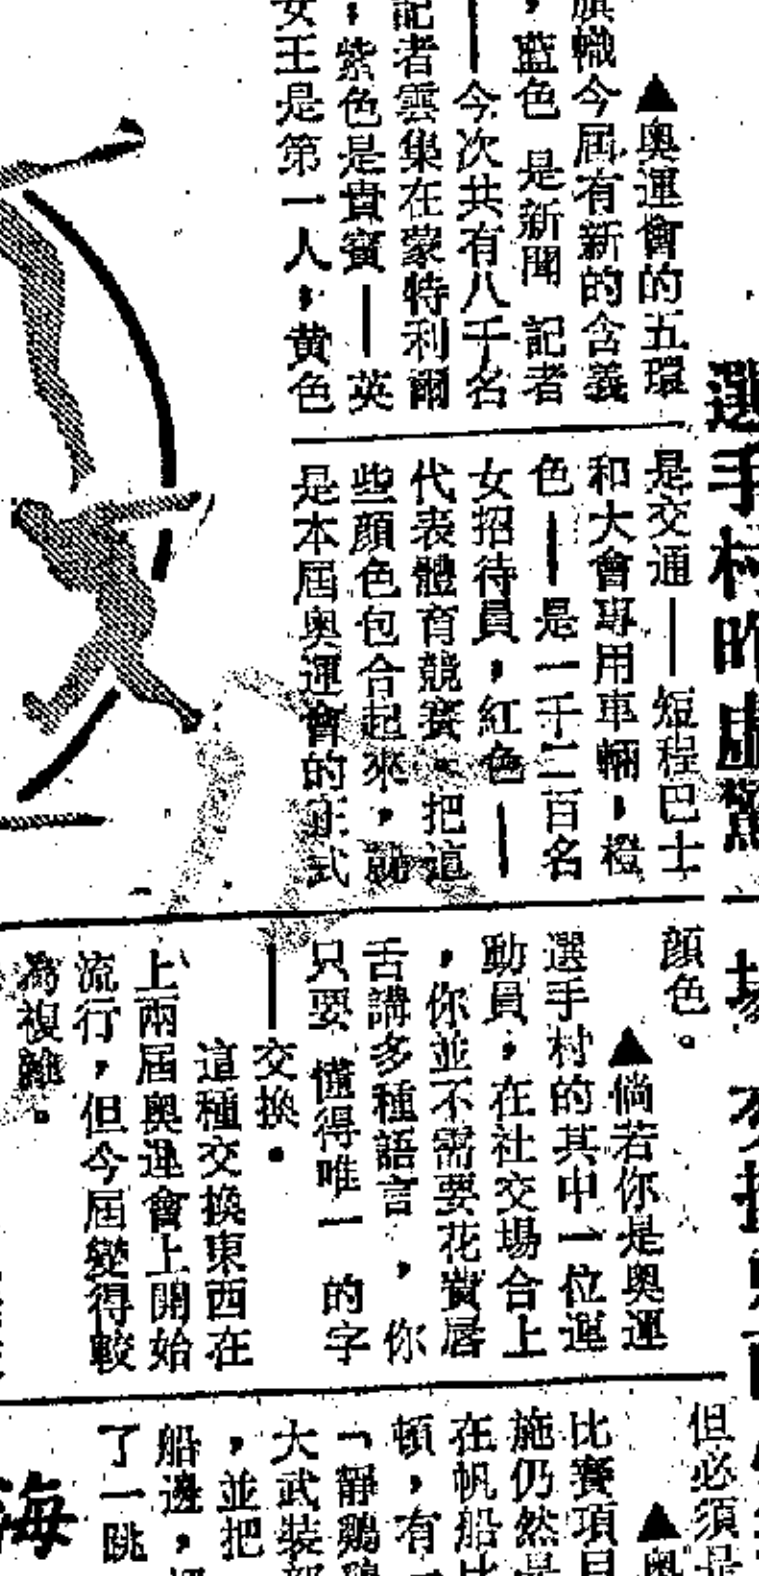 選手村昨虛驚一場
▲奧運會的五環
旗幟今屆有新的含義
，藍色　是新聞　記者
——今次共有八千名
記者雲集在蒙特利爾
，紫色是貴賓——英
女王是第一人，黄色
是交通——短程巴士
和大會專用車輛，橙
色——是一千二百名
女招待員，紅色——
代表體育競賽。把這
些顏色包合起來，就
是本屆奧運會的正式
顏色。
▲倘若你是奧運
選手村的其中一位運
動員，在社交場合上
，你並不需要花費唇
舌講多種語言，你
只要　懂得唯一　的字
——交換。
這種交換東西在
上兩屆奧運會上開始
流行，但今屆變得較
為複雜。
但必須是
▲奧
比賽項目
施仍然是
在帆船比
頓，有一
「靜鷄
大武裝部
，並把
船邊，
了一跳
海